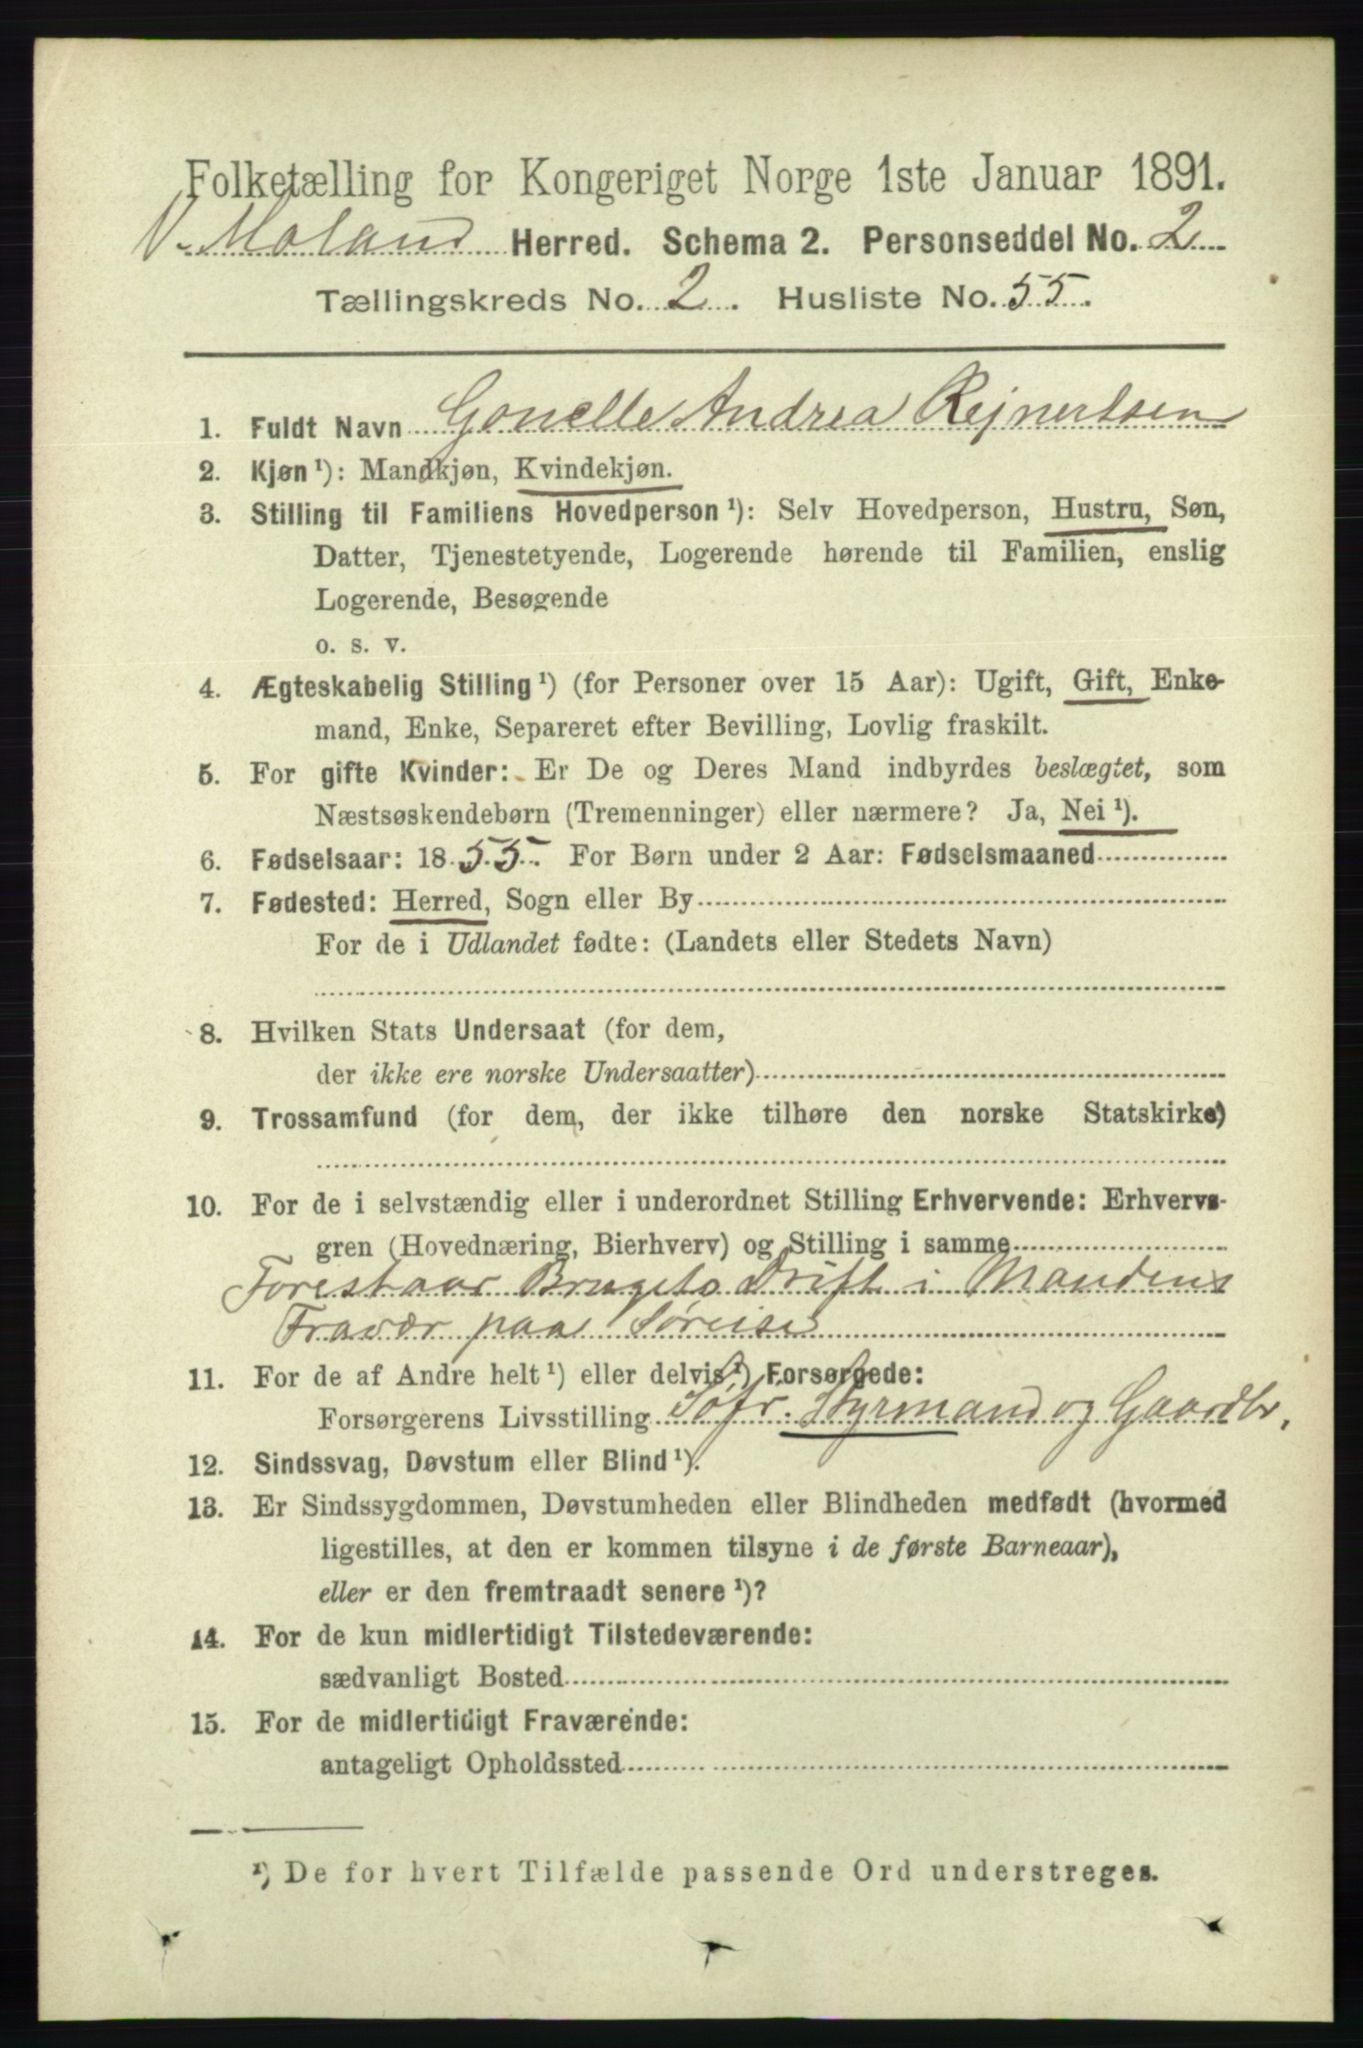 Folketælling for Kongeriget Norge 1ste Januar 1891.
V. Moland Herred. Schema 2. Personseddel No. 2
Tællingskreds No. 2. Husliste No. 55.
1. Fuldt Navn Gonelle Andrea Rejnertsen
2. Kjøn ¹): Mandkjøn, Kvindekjøn.
3. Stilling til Familiens Hovedperson ¹): Selv Hovedperson, Hustru, Søn,
Datter, Tjenestetyende, Logerende hørende til Familien, enslig
Logerende, Besøgende
o. s. v.
4. Ægteskabelig Stilling ¹) (for Personer over 15 Aar): Ugift, Gift, Enke-
mand, Enke, Separeret efter Bevilling, Lovlig fraskilt.
5. For gifte Kvinder: Er De og Deres Mand indbyrdes beslægtet, som
Næstsøskendebørn (Tremenninger) eller nærmere? Ja, Nei ¹).
6. Fødselsaar: 1855. For Børn under 2 Aar: Fødselsmaaned
7. Fødested: Herred, Sogn eller By
For de i Udlandet fødte: (Landets eller Stedets Navn)
8. Hvilken Stats Undersaat (for dem,
der ikke ere norske Undersaatter)
9. Trossamfund (for dem, der ikke tilhøre den norske Statskirke)
10. For de i selvstændig eller i underordnet Stilling Erhvervende: Erhvervs-
gren (Hovednæring, Bierhverv) og Stilling i samme
Forestaar Brugets Drift i Mandens
Fravær paa Søreise
11. For de af Andre helt ¹) eller delvis ¹) Forsørgede:
Forsørgerens Livsstilling Søfr. Styrmand og Gaardbr.
12. Sindssvag, Døvstum eller Blind ¹).
13. Er Sindssygdommen, Døvstumheden eller Blindheden medfødt (hvormed
ligestilles, at den er kommen tilsyne i de første Barneaar),
eller er den fremtraadt senere ¹)?
14. For de kun midlertidigt Tilstedeværende:
sædvanligt Bosted
15. For de midlertidigt Fraværende:
antageligt Opholdssted
¹) De for hvert Tilfælde passende Ord understreges.